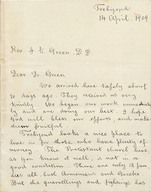 Trebizond
14 April, 1909
Rev. F. E. Green. D. D.
Dear Dr. Green
We arrived here safely about
10 days ago. They received us very
kindly. We began our work immediate-
ly and are doing our best. I hope
God will bless our efforts, and make
them fruitful.
Trebizond looks a nice place to
live in, for those who have plenty of
money. The Protestant church here
as you know it well, is not in a
good condition. There are only a few
All but Armenians and Greeks
But the quarrellings and fighting has